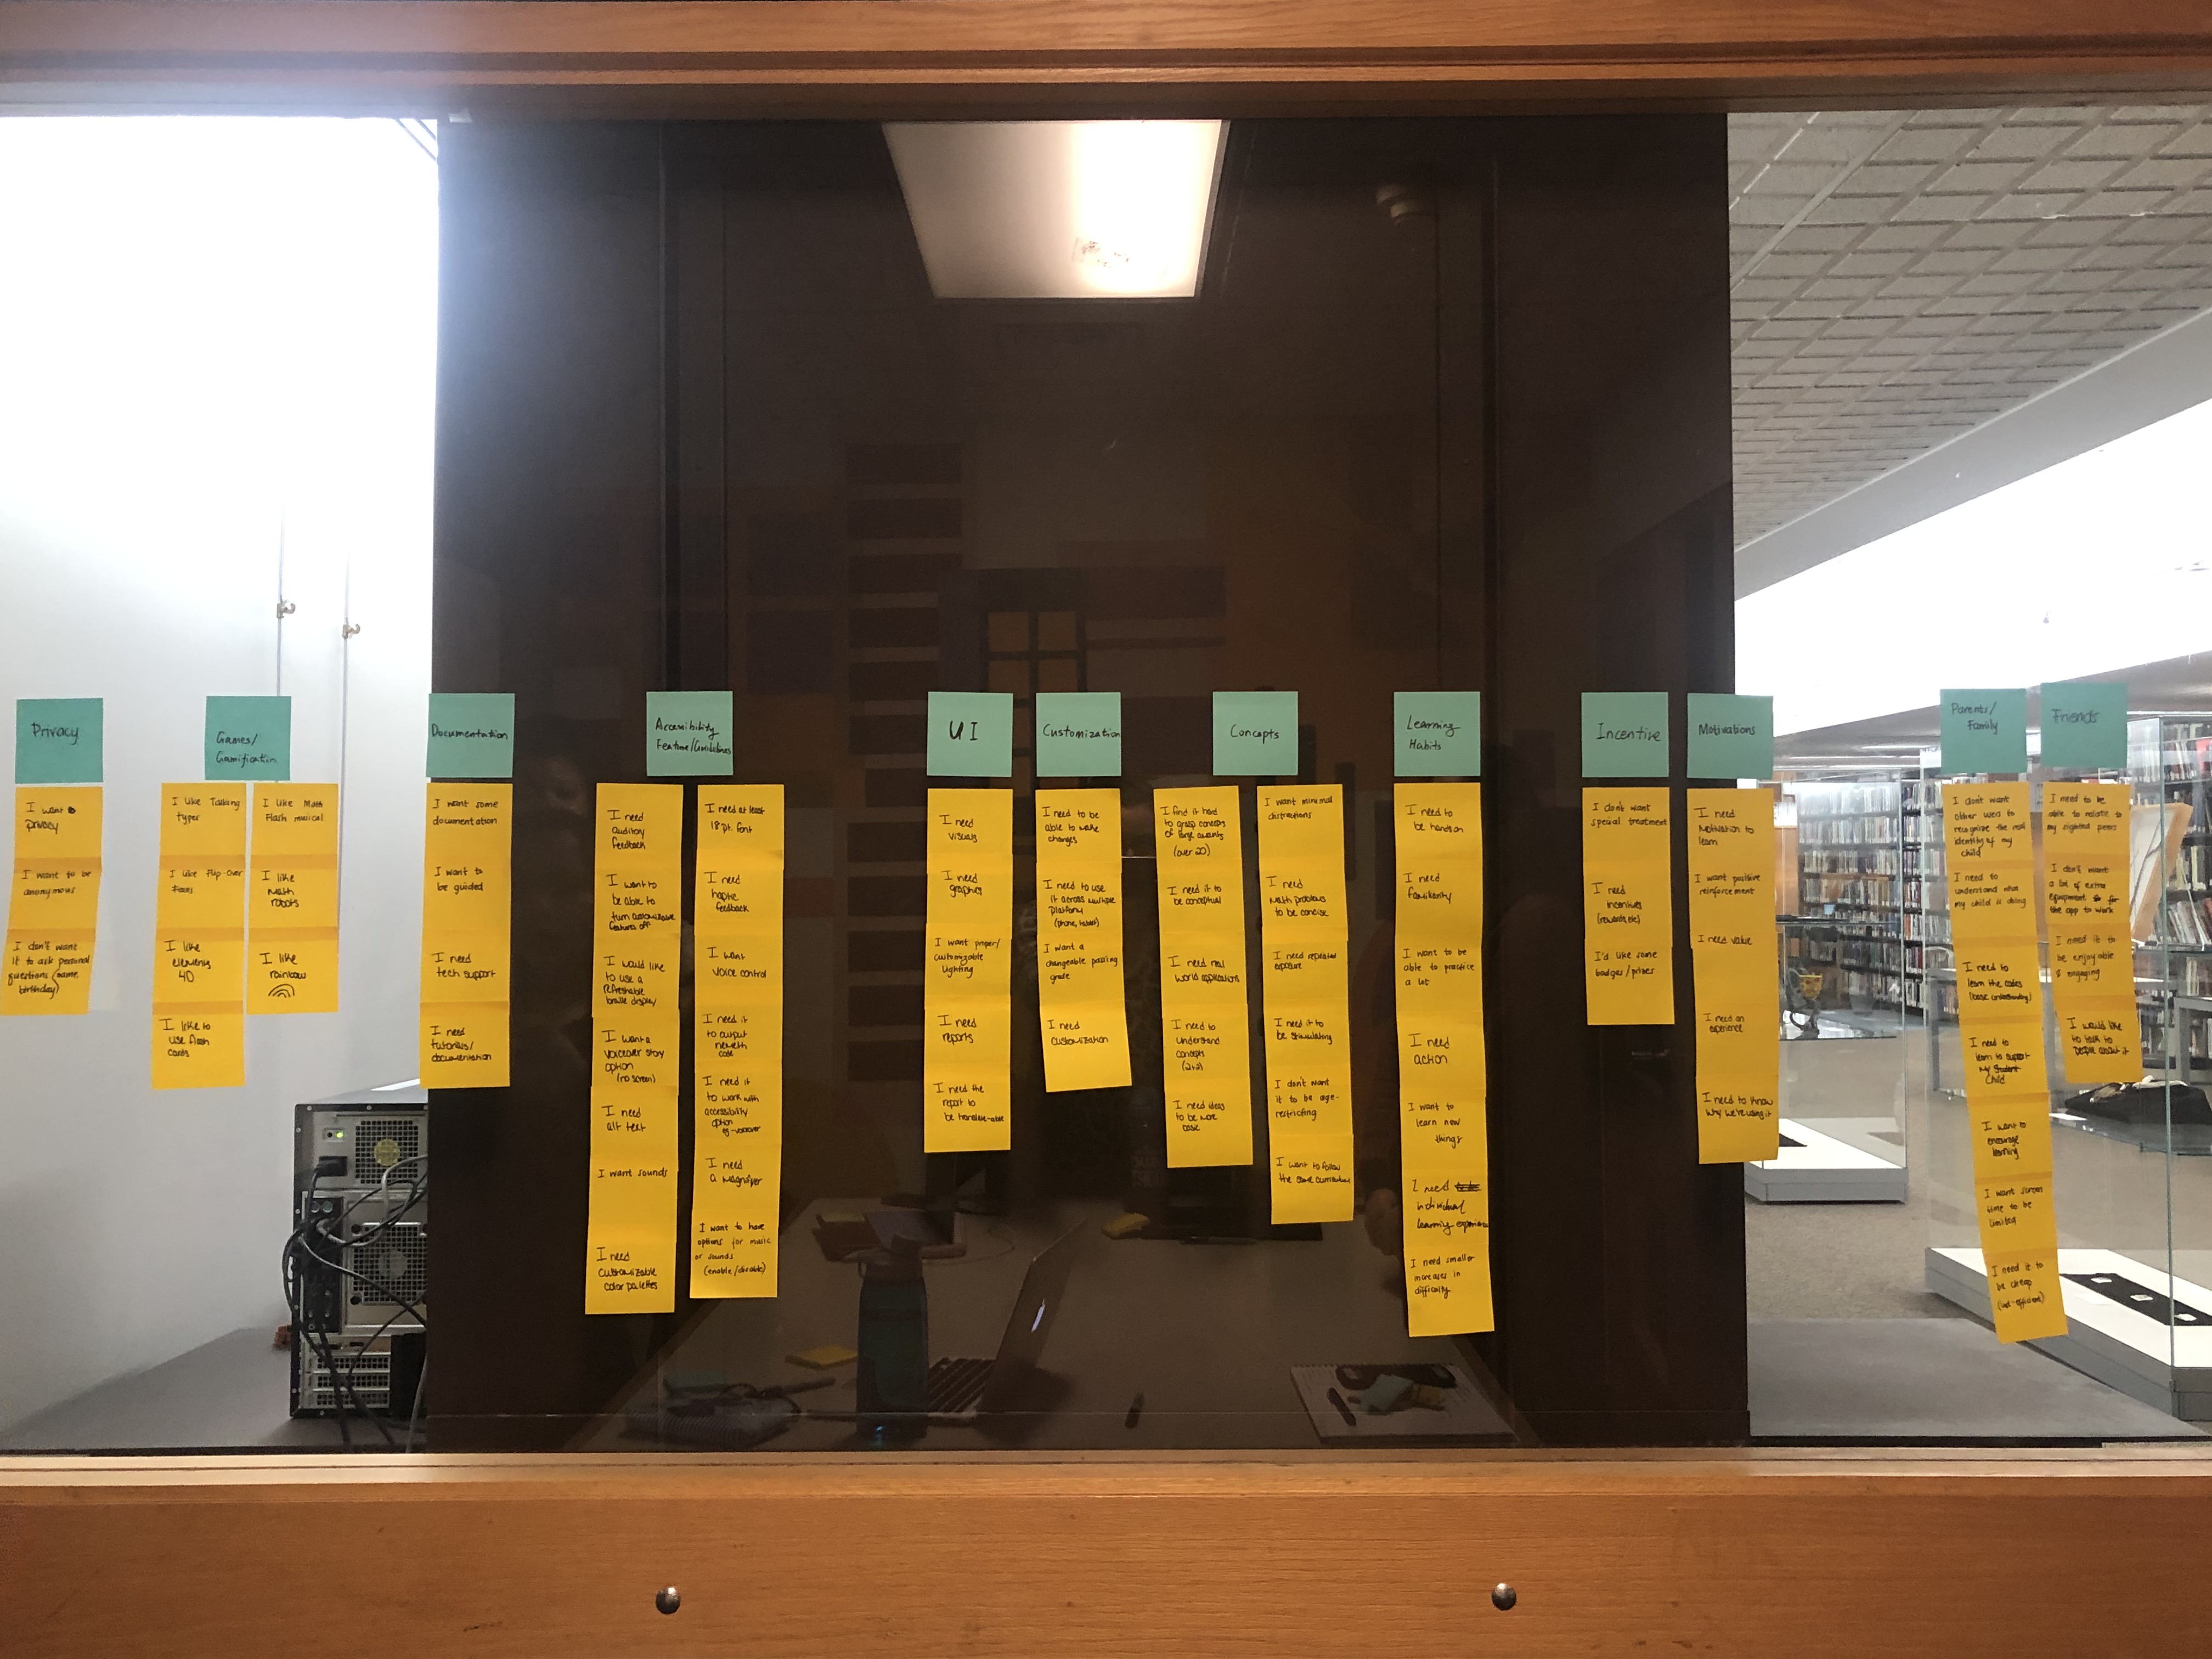 Privacy
I want
privacy
I want to be
anonymous
I don't want
it to ask personal
questions (name
birthday)
Games/
Gamification
I like Talking
typer
I like Flip-Over
I like
elements
4D
I like to
use flash
cards
I like Math
Flash musical
I like
math
robots
I like
rainbow
Documentation
I want some
documentation
I want to
be guided
I need
tech support
I need
tutorials/
documentation
Accessibility
Feature/Guidelines
I need
auditory
feedback
I want to
be able to
turn
features off
I would like
to use a
refreshable
braille display
I want a
voiceover story
option
(no screen)
I need
alt text
I want sounds
I need
customizable
color palettes
I need at least
18 pt. font
I need
haptic
feedback
I want
voice control
I need it
to output
nemeth
code
I need it
to work with
accessibility
option
eg-voiceover
I need
a magnifier
I want to have
options for music
or sounds
(enable/disable)
UI
I need
visuals
I need
graphes
I want proper/
customizable
lighting
I need
reports
I need the
report to
be translate-able
Customization
I need to be
able to make
changes
I need to use
it across multiple
platform
(phone, tablet)
I want a
changeable passing
grade
I need
customization
Concepts
I find it hard
to grasp concepts
of large amounts
(over 20)
I need it to
be conceptual
I need real
world applications
I need to
understand
concepts
(2+2)
I need ideas
to be more
base
I want minimal
distractions
I need
math problems
to be concise
I need repeated
exposure
I need it to
be stimulating
I don't want
it to be age-
restricting
I want to follow
the same curriculum
Learning
Habits
I need to
be hands on
I need
familiarity
I want to be
able to practice
a lot
I need
action
I want to
learn new
things
I need
individual
learning experience
I need smaller
increases in
difficulty
Incentive
I don't want
special treatment
I need
incentives
(rewards, etc)
I'd like some
badges/prizes
Motivations
I need
motivation to
learn
I want positive
reinforcement
I need value
I need an
experience
I need to know
why we're using it
Parents/
Family
I don't want
other users to
recognize the real
identity of my
child
I need to
understand what
my child is doing
I need to
learn the codes
(basic understanding)
I need to
learn to support
my Student
child
I want to
encourage
learning
I want screen
time to be
limited
I need it to
be cheap
(cost-efficient)
Friends
I need to be
able to relate to
my sighted peers
I don't want
a lot of extra
equipment for
the app to work
I need it to
be enjoyable
& engaging
I would like
to talk to
people about it